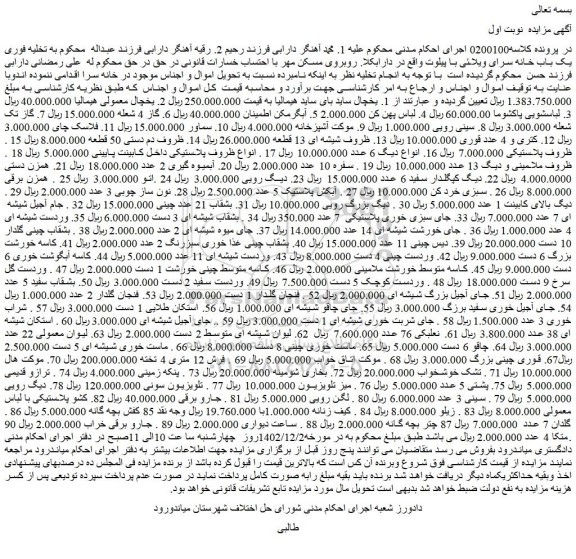 بسمه تعالی
آگهی مزایده نوبت اول
در پرونده کلاسه0200100 اجرای احکام مدنی محکوم علیه 1. محمد آهنگر دارابی فرزند رحیم 2. رقیه آهنگر دارابی فرزند عبداله محکوم به تخلیه فوری
یک باب خانه سرای ویلائی با پیلوت واقع در دارابکلا. روبروی مسکن مهر با احتساب خسارات قانونی در حق در حق محکوم له علی رمضانی دارابی
فرزند حسن محکوم گردیده است با توجه به انجام تخلیه نظر به اینکه نامبرده نسبت به تحویل اموال و اجناس موجود در خانه سرا اقدامی ننموده اندوبا
عنایت به توقیف اموال و اجناس و ارجاع به امر کارشناسی جهت برآورد و محاسبه قیمت کل اموال و اجناس که طبق نظریه کارشناسی به مبلغ
1.383.750.000 ریال تعیین گردیده و عبارتند از 1. یخچال ساید بای ساید هیمالیا به قیمت 250.000.000 ریال 2. یخچال معمولی هیمالیا 40.000.000 ریال
3. لباسشویی پاکشوما 60.000.00 ریال 4. لباس پهن کن 2.000.000 ریال 5. آبگرمکن اطمینان 40.000.000 ریال 6. گاز 4 شعله 15.000.000 ریال 7. گاز تک
شعله 3.000.000 ریال 8. سینی رویی 1.000.000 ریال 9. موکت آشپزخانه 4.000.000 ریال 10. سماور 15.000.000 ریال 11. فلاسک چای 3.000.000
ریال 12. کتری و 4 عدد قوری 10.000.000 ریال 13. ظروف شیشه ای 13 قطعه 26.000.000 ریال 14. ظروف دم دستی 50 قطعه 8.000.000 ریال 15.
ظروف پلاستیکی 7.000.000 ریال 16. انواع دیگ 6 عدد 10.000.000 ریال 17. انواع ظروف پلاستیکی داخل کابینت پایینی 5.000.000 ریال 18.
ظروف ملامینی و دیگ 13 عدد 10.000.000 ریال 19. سفره 10 عدد 2.000.000 ریال 20. آبمیوه گیری 2 عدد 18.000.000 ریال 21. همزن دستی
4.000.000 ریال 22. دیگ کیگلدار سفید 6 عدد 15.000.000 ریال 23. دیگ رویی 3.000.000 ریال 24. اتو 3.000.000 ریال 25. همزن برقی
8.000.000 ریال 26. سبزی خرد کن 18.000.000 ریال 27. آبکش پلاستیک 5 عدد 2.500.000 ریال 28. نون ساز چوبی 3 عدد 2.000.000 ریال 29.
دیگ بالای کابینت 1 عدد 5.000.000 ریال 30. دیگ بزرگ رویی 10.000.000 ریال 31. بشقاب 21 عدد چینی 15.000.000 ریال 32. جام آجیل شیشه
ای 7 عدد 7.000.000 ریال 33. جای سبزی خوری پلاستیکی 7 عدد 350.000 ریال 34. بشقاب شیشه ای 3 دست 6.000.000 ریال 35. وردست شیشه ای
4 عدد 1.000.000 ریال 36. جای خورشت شیشه ای 14 عدد 14.000.000 ریال 37. جای میوه شیشه ای 2 عدد 2.000.000 ریال 38. بشقاب چینی گلدار
10 دست 20.000.000 ریال 39. دیس چینی 11 عدد 15.000.000 ریال 40. بشقاب چینی غذا خوری سبزرنگ 2 عدد 2.000.000 ریال 41. کاسه خورشت
بزرگ 6 دست 9.000.000 ریال 42. وردست چینی 4 دست 8.000.000 ریال 43. وردست شیشه ای 11 عدد 5.000.000 ریال 44. کاسه آبگوشت خوری 6
دست 9.000.000 ریال 45. کاسه متوسط خورشت ملامینی 2.000.000 ریال 46. کاسه متوسط چینی خورشت 1 دست 2.000.000 ریال 47. وردست گل
سرخ 9 دست 18.000.000 ریال 48. وردست کوچک 5 دست 7.500.000 ریال 49. وردست سفید 2 دست 3.000.000 ریال 50. بشقاب سفید 5 عدد
2.000.000 ریال 51. جای آجیل بزرگ شیشه ای 2.000.000 ریال 52. فنجان گلدان 1 دست 2.000.000 ریال 53. فنجان گلدار 2 عدد 1.000.000 ریال
54. جای آجیل خوری سفید بزرگ 3.000.000 ریال 55. جای چاقو شیشه ای 1.000.000 ریال 56. استکان طلایی 1 دست 3.000.000 ریال 57. شراب
خوری 3 عدد 1.500.000 ریال 58. جای شربت خوری شیشه ای 1 دست 3.000.000 ریال 59. جای آجیل شیشه ای 3.000.000 ریال 60. استکان شیشه
ای 38 عدد 3.800.000 ریال 61. نعلبکی 76 عدد 7.600.000 ریال 62. لیوان شیشه ای متوسط 2 دست 2.000.000 ریال 63. لیوان معمولی 22 عدد
3.000.000 ریال 64. چاقو 6 دست 5.000.000 ریال 65. ماست خوری چینی 8 دست 8.000.000 ریال 66. ماست خوری شیشه ای 5 دست 2.500.000
ریال67. قوری چینی بزرگ 3.000.000 ریال 68. موکت اتاق خواب 5.000.000 ریال 69. فرش 12 متری 4 تخته 200.000.000 ریال 70. موکت هال
10.000.000 ریال 71. تشک خوشخواب 20.000.000 ریال 72. بخاری شومینه 20.000.000 ریال 73. پنکه زمینی 4.000.000 ریال 74. ترازو قدیمی
5.000.000 ریال 75. پشتی 5 عدد 5.000.000 ریال 76. میز تلویزیون 10.000.000 ریال 77. تلویزیون سونی 120.000.000 ریال 78. دیگ رویی
5.000.000 ریال 79. سینی 3 عدد 6.000.000 ریال 80. لگن رویی 5.000.000 ریال 81. جارو برقی 40.000.000 ریال 82. کشو پلاستیکی با لباس
معمولی 8.000.000 ریال 83. زیلو 8.000.000 ریال 84. کیف زنانه 1.000.000با 19.760.000 ریال وجه نقد 85 کفش بچه گانه 5.000.000 ریال 86.
گلدان 7 عدد 7.000.000 ریال 87 چتر بچه گانه 2.000.000 ریال 88. ساعت دیواری 2.000.000 ریال 89. جارو برقی خراب 2.000.000 ریال 90
.متکا 4 عدد 2.000.000 ریال می باشد طبق مبلغ محکوم به در مورخه1402/12/2روز چهارشنبه سا عت 10الی 11صبح در دفتر اجرای احکام مدنی
دادگستری میاندرود بفروش می رسد متقاضیان می توانند پنج روز قبل از برگزاری مزایده جهت اطلاعات بیشتر به دفتر اجرای احکام میاندرود مراجعه
نمایند مزایده از قیمت کارشناسی فوق شروع وبرنده آن کس است که بالاترین قیمت را قبول کرده باشد از برنده مزایده فی المجلس ده درصدبهای پیشنهادی
اخذ وبقیه حداکثریکماه دیگر دریافت خواهد شد برنده باید بقیه مبلغ رابه صورت کامل پرداخت نماید در صورت عدم پرداخت سپرده تودیعی پس از کسر
هزینه مزایده به نفع دولت ضبط خواهد شد بدیهی است تحویل مال مورد مزایده تابع تشریفات قانونی خواهد بود.
دادورز شعبه اجرای احکام مدنی شورای حل اختلاف شهرستان میاندورود
طالبی